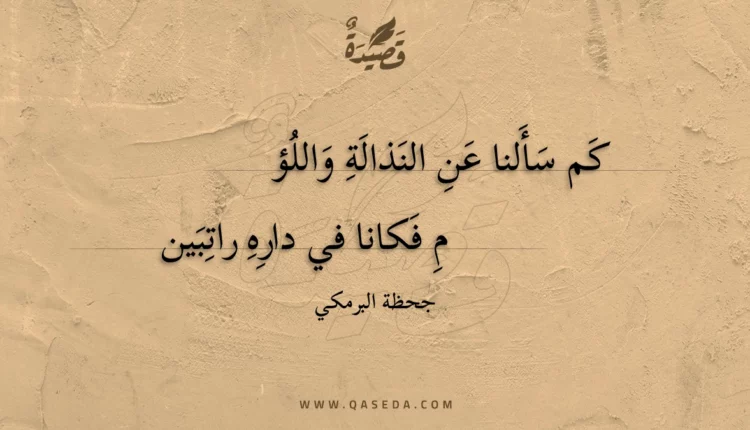 قَصِيْدَةٌ
كَم سَأَلنا عَنِ النَذالَةِ وَاللُؤ
مِ فَكانا في دارِهِ راتِبَين
جحظة البرمكي
WWW.QASEDA.COM